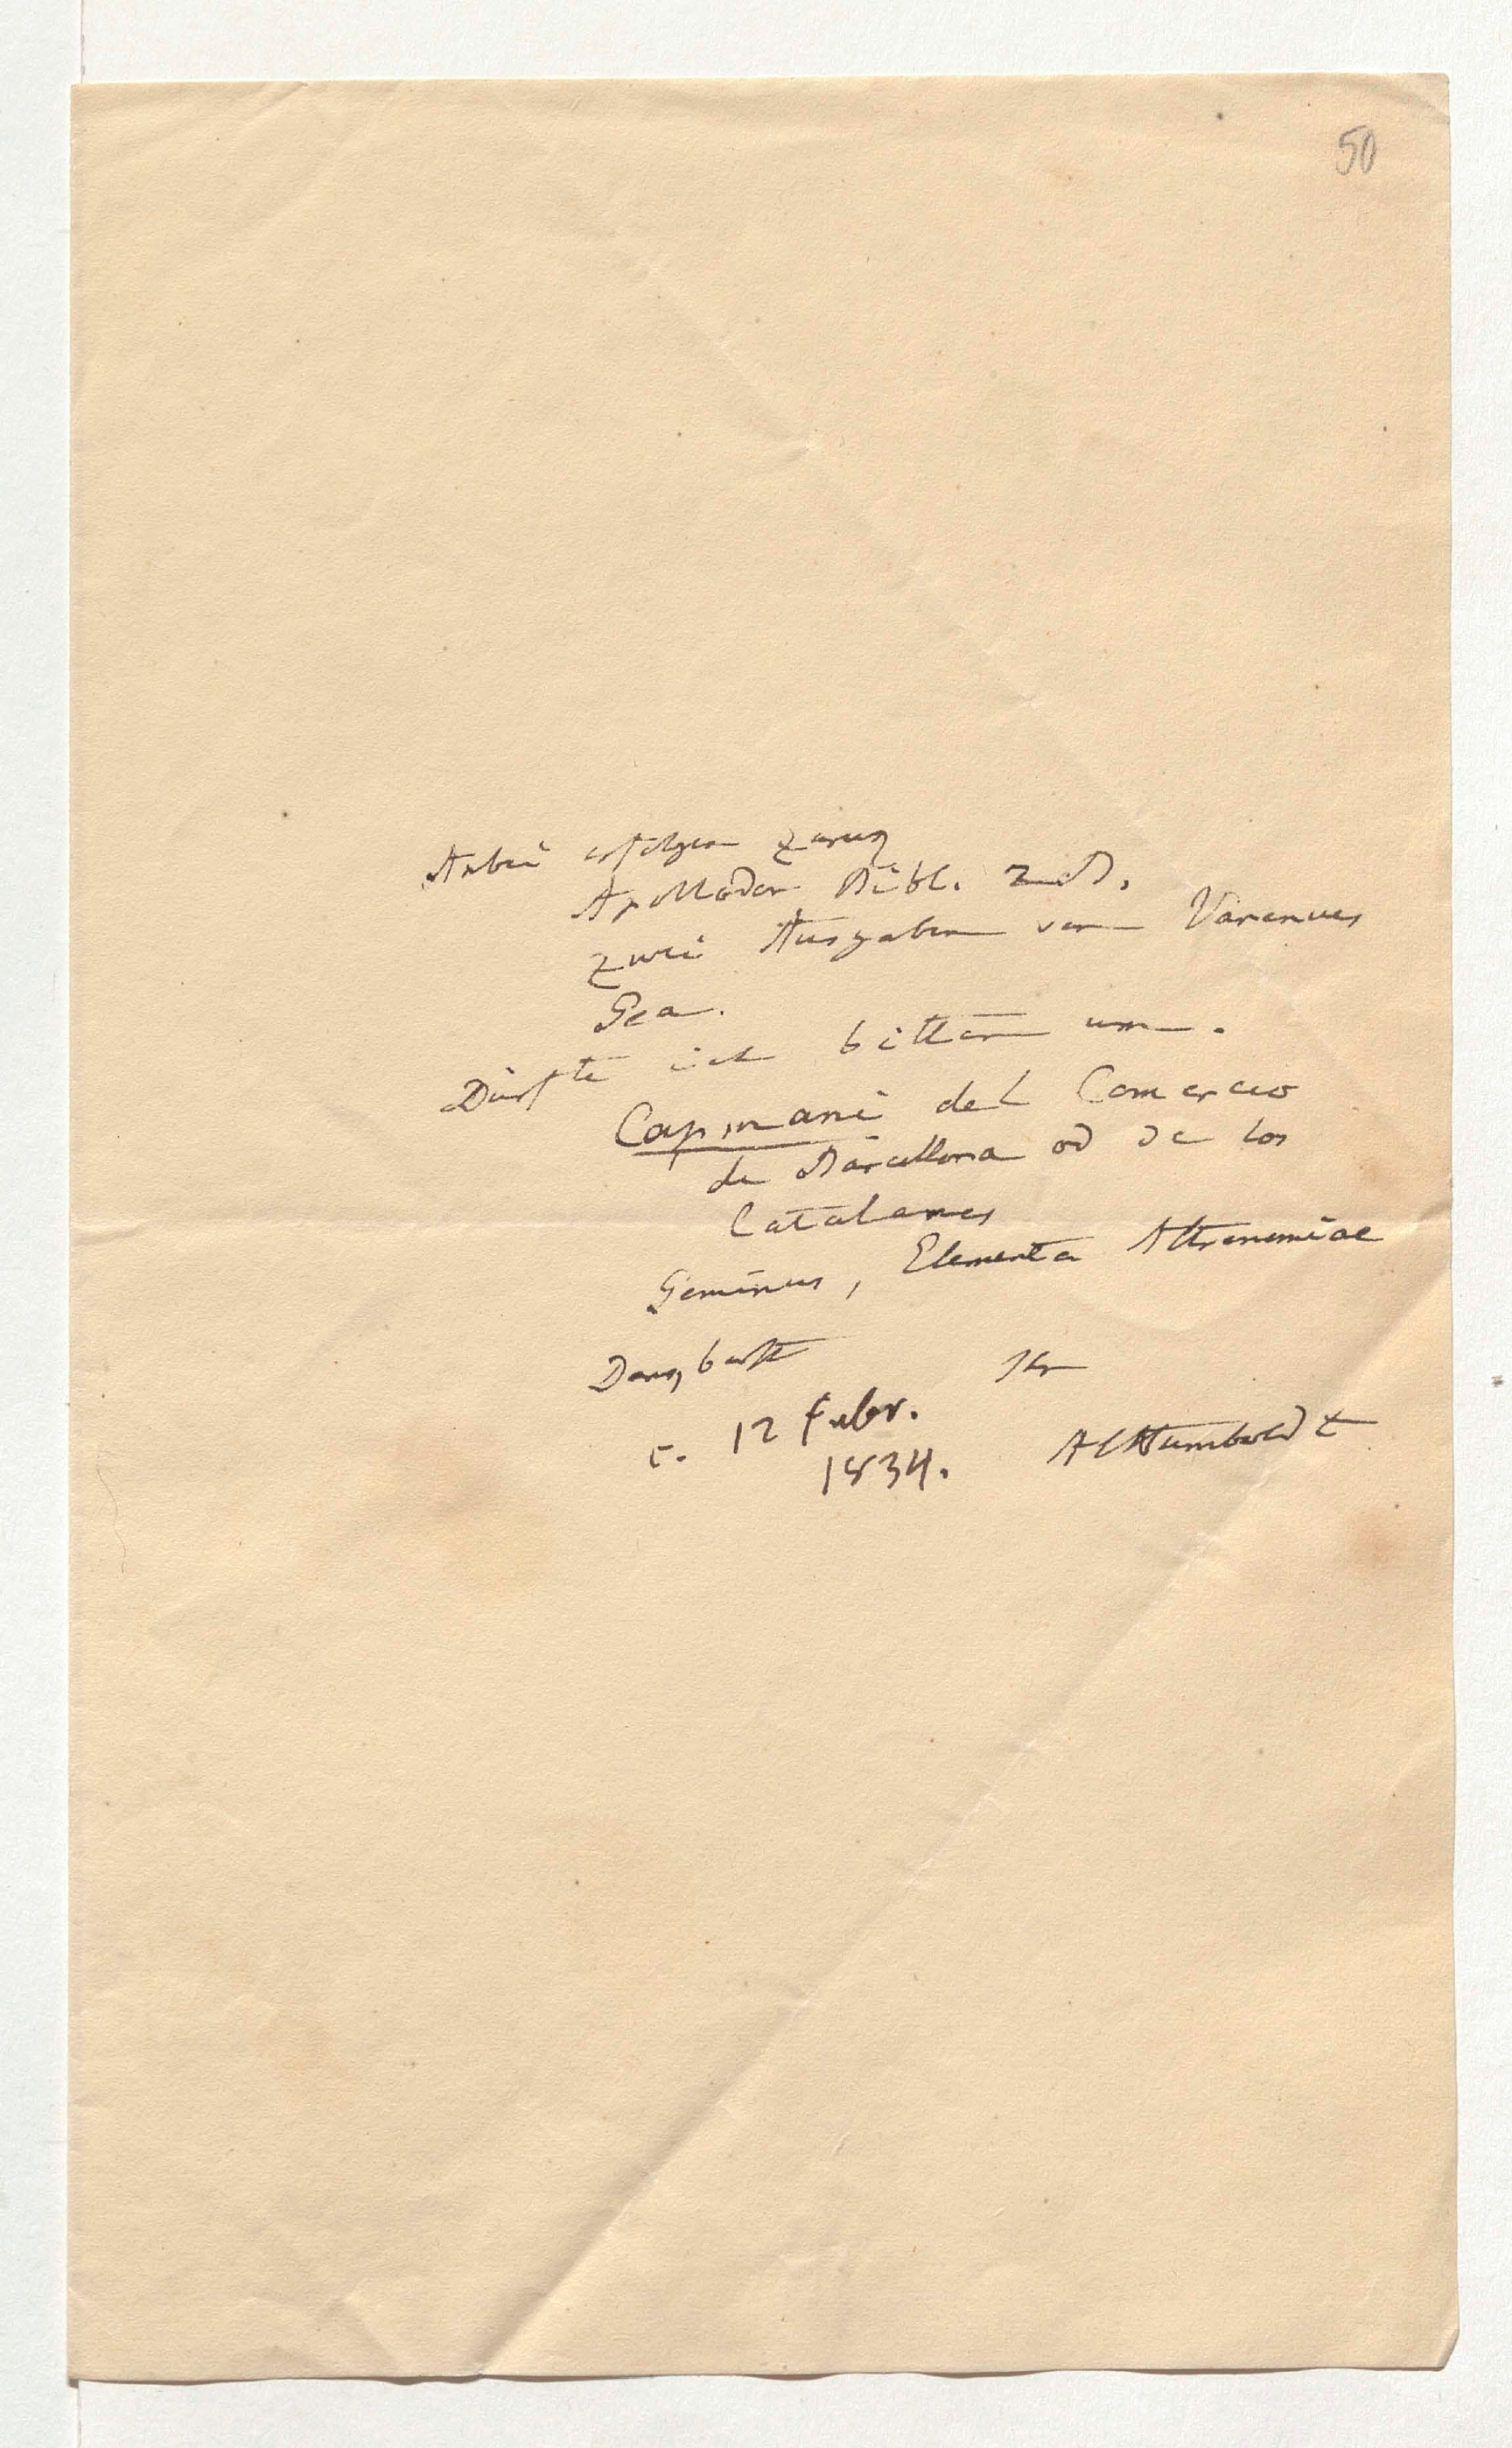 50
Anbei erfolgen zurück
Apollodor Bibl. 2 B.
zwei Ausgaben von Varenius
Geo.
Dürfte ich bitten um.
Capmani del Comercio
de Barcellona od de los
Catalanes
Geminus, Elementa Astronomiae
Dankbarst
Ihr
12 Febr.
1834.
AlHumboldt